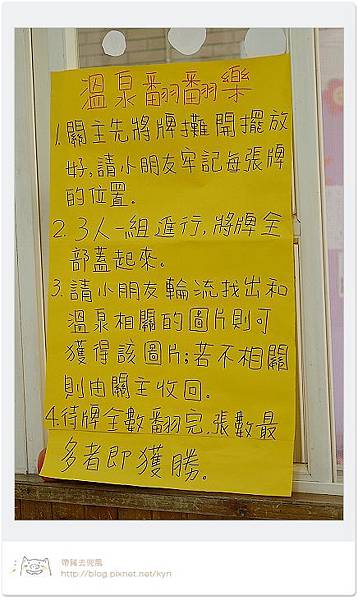 溫泉翻翻樂
1.關主先將牌攤開擺放
好,請小朋友牢記每張牌
的位置.
2.3人一組進行,將牌全
部蓋起來.
3.請小朋友輪流找出和
溫泉相關的圖片則可
獲得該圖片;若不相關
則由關主收回.
4.待牌全數翻完,張數最
多者即獲勝。
帶豬去兜風
http://blog.pixnet.net/kyn